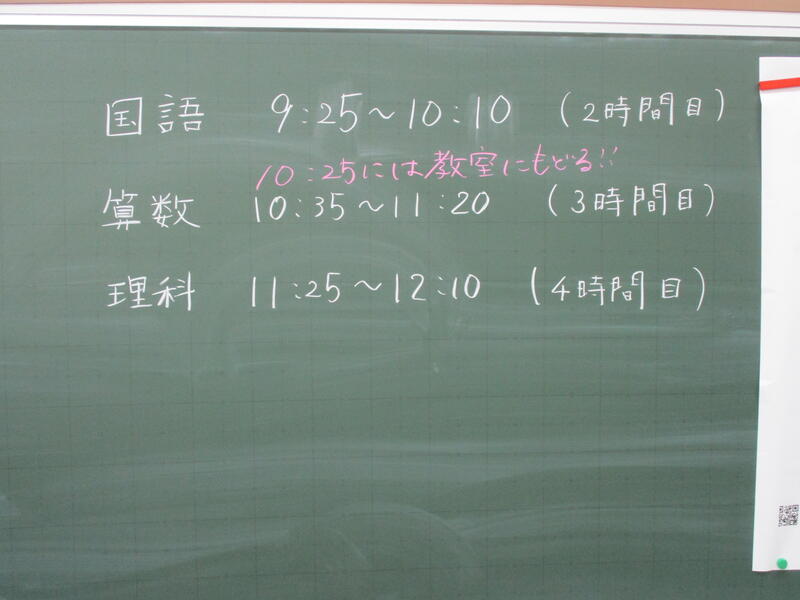 国語 9:25～10:10 (2時間目)
10:25には教室にもどる!!
算数 10:35～11:20 (3時間目)
理科 11:25～12:10 (4時間目)